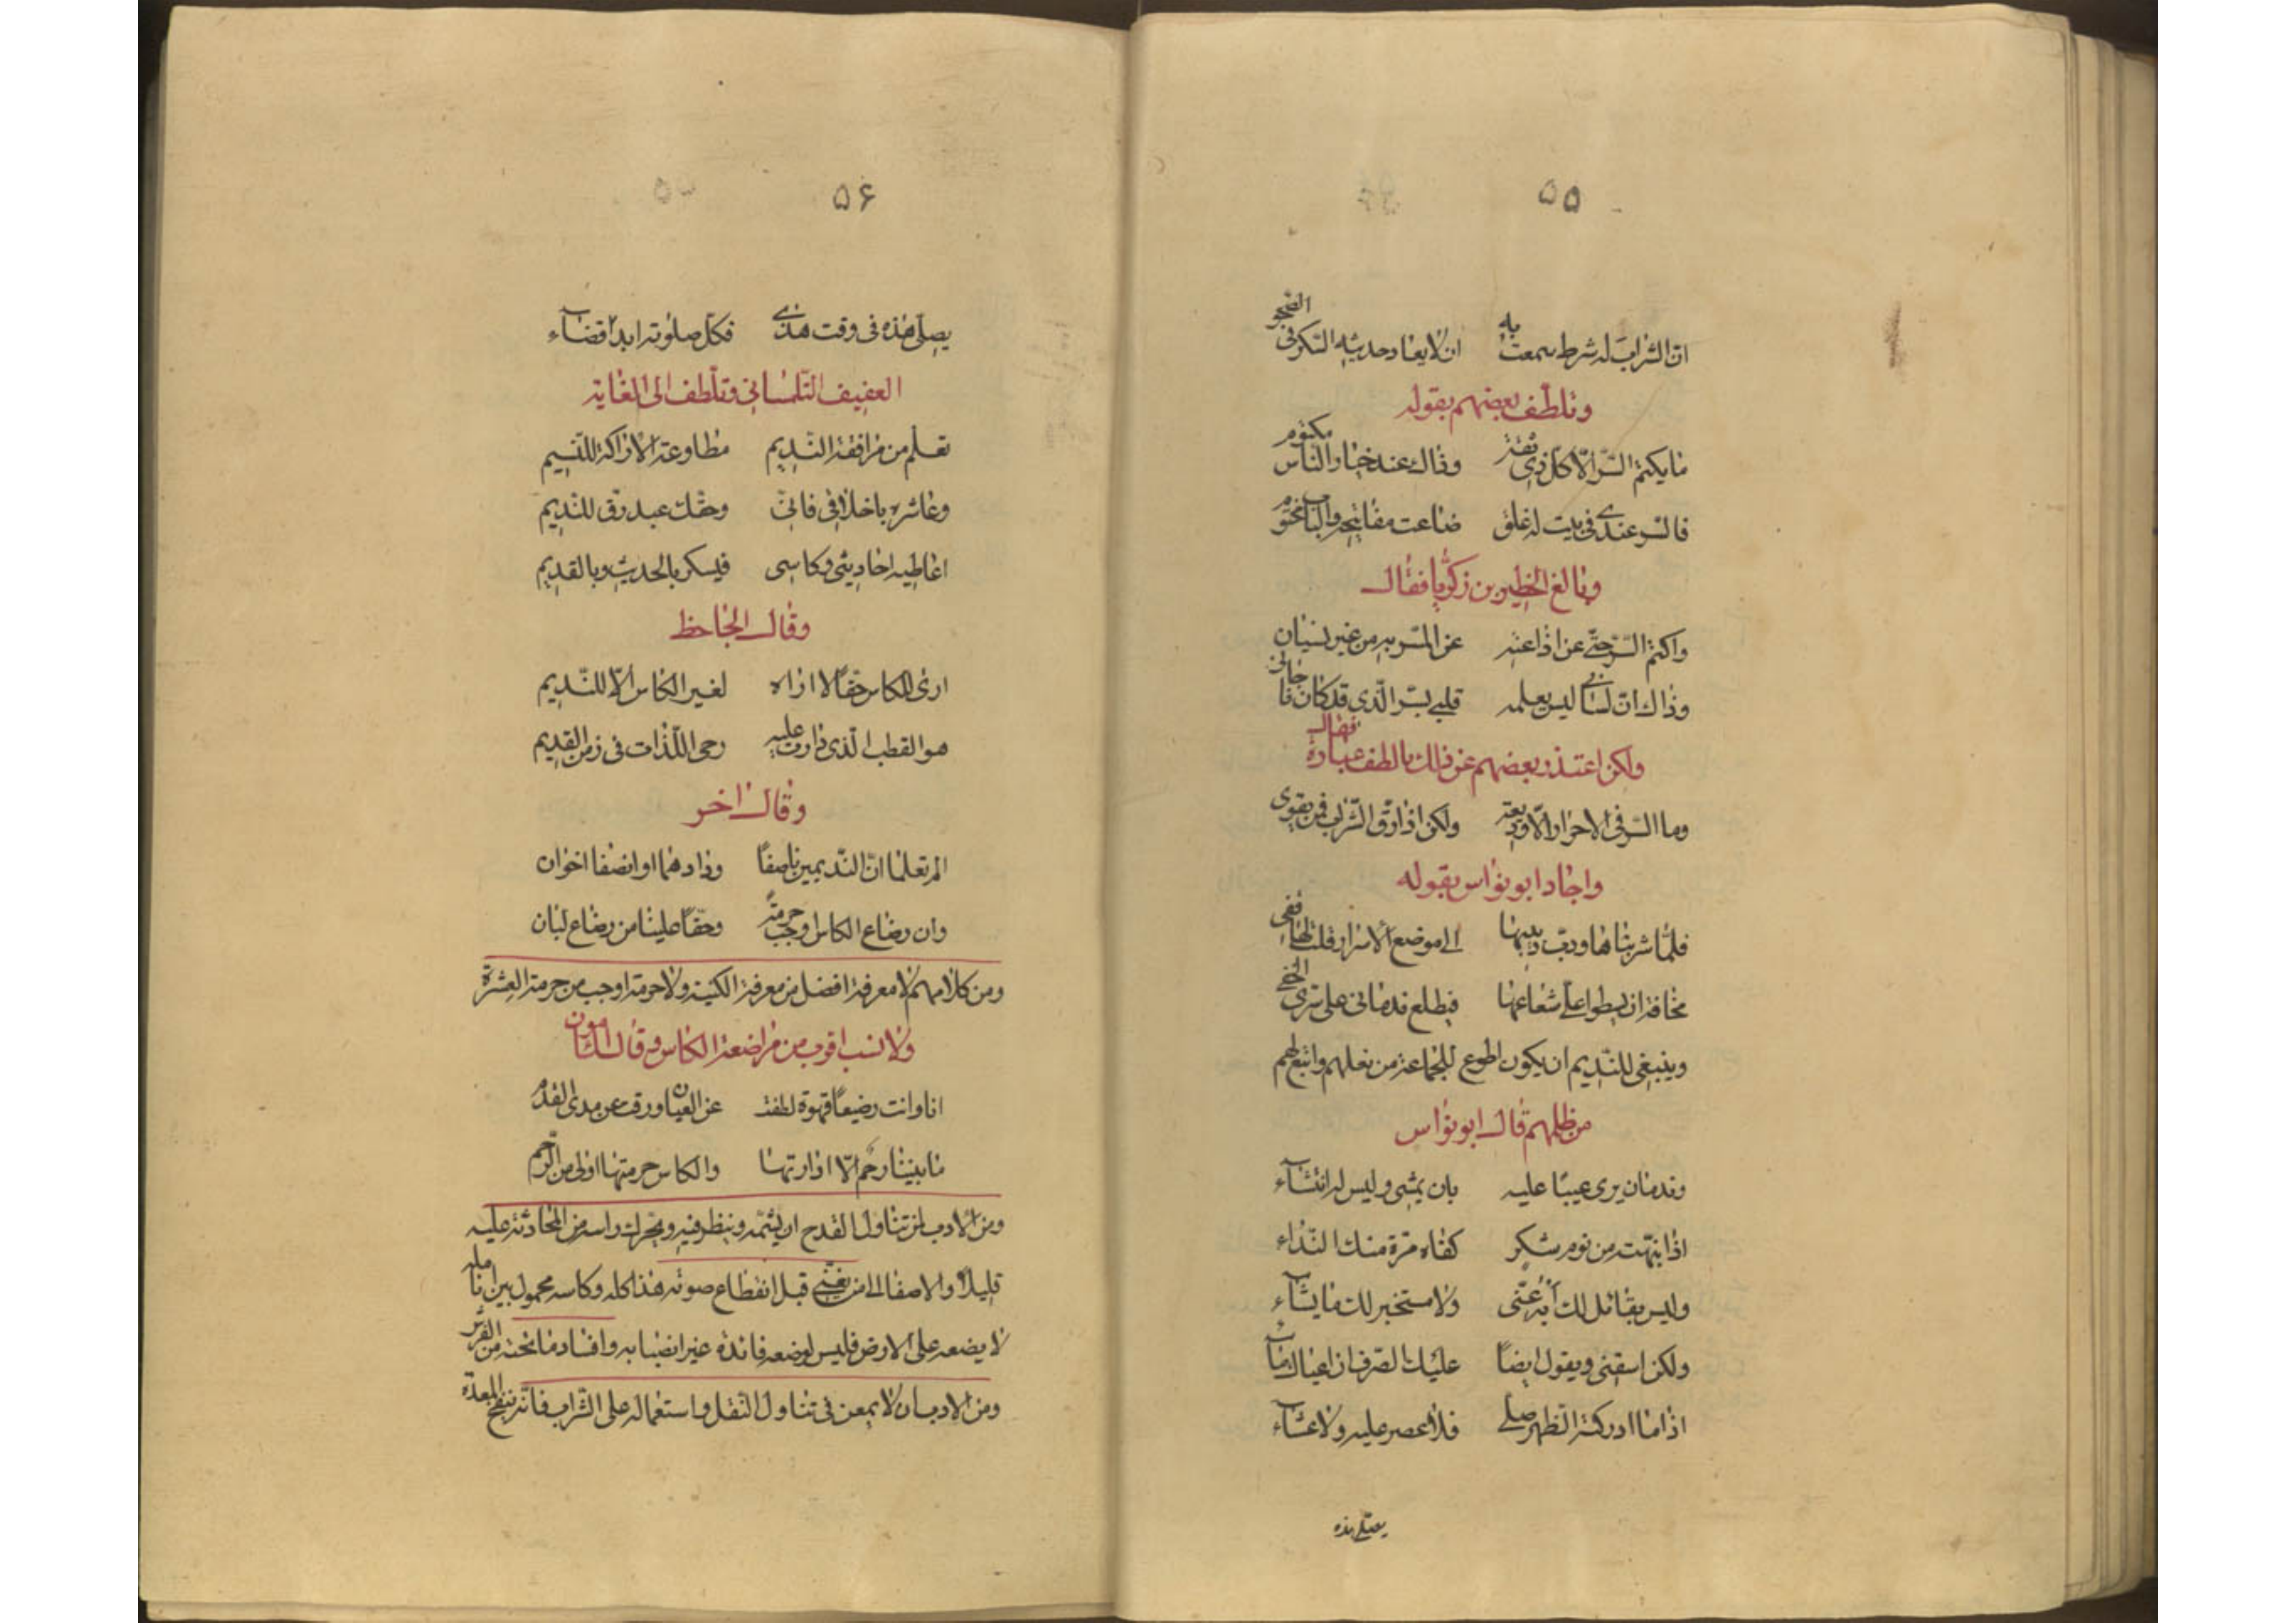 ۵۵
ان الشراب له شرط سمعت به ان لا يعاد حديث السكر فى الضحو
وتلطف بعضهم بقوله
ما يكتم السر الا كل ذى ثقة وقال عند خيار الناس مكتوم
فالسر عندى فى بيت له غلق ضاعت مفاتيحه والباب مختوم
وبالغ الخطير بن زكريا فقال
واكتم السر حتى عن اذاعته عن المسر به من غير نسيان
وذاك ان لسانى ليس يعلمه قلبى بسر الذى قد كان ناجانى
ولكن اعتذر بعضهم عن ذلك بالطف عبارة فقال
وما السر فى الاحرار الا وديعة ولكن اذا رق الشراب فمن يقوى
واجاد ابو نواس بقوله
فلما شربناها ودب دبيبها الى موضع الاسرار قلت لها قفى
مخافة ان يسطو على شعاعها فيطلع ندمانى على سرى الخفى
وينبغى للنديم ان يكون اطوع للجماعة من نعلهم واتبع لهم
من ظلهم قال ابو نواس
وندمان يرى عيبًا عليه بان يمشى وليس له انتشآء
اذا نبهت من نوم بسكر كفاه مرة منك النداء
وليس بقائل لك ايه عنى ولا مستخبر لك ما يشآء
ولكن اسقنى ويقول ايضًا عليك الصرف ان اعياك مآء
اذا ما ادركته الظهر صلى فلا عصر عليه ولا عشآء
يصلى هذه
۵۶
يصلى هذه فى وقت هذى فكل صلوته ابدا قضآء
العفيف التلمسانى وتلطف الى الغاية
تعلم من مرافقة النديم مطاوعة الاراكة للنسيم
وعاشره باخلاقى فانى وحقك عبد رق للنديم
اعاطيه احاديثى وكاسى فيسكر بالحديث وبالقديم
وقال الجاحظ
ارى للكاس حقًا لا اراه لغير الكاس الا للنديم
هو القطب الذى دارت عليه رحى اللذات فى زمن القديم
وقال اخر
الم تعلما ان النديمين ناصفًا ودادهما او انصفا اخوان
وان رضاع الكاس اوجب حرمة وحقًا علينا من رضاع لبان
ومن كلامهم لا معرفة افضل من معرفة الكيسة ولا حرمة اوجب من حرمة العشرة
ولا نسب اقرب من مراضعة الكاس وقال المامون
انا وانت رضيعًا قهوة لطفت عن العيان ورقت عن مدى القدم
ما بيننا رحم الا ادارتها والكاس حرمتها اولى من الرحم
ومن الادب لمن تناول القدح ان يشمه وينظر فيه ويحرك راسه من المحادثة عليه
قليلًا والاصغا الى من يغنى قبل انقطاع صوته هذا كله وكاسه محمول بين انامله
لا يضعه على الارض فليس لوضعه فائدة غير انصبابه وافساد ما تحته من الفرش
ومن الادب ان لا يمعن فى تناول النقل واستعماله على الشراب فانه ينفخ المعدة